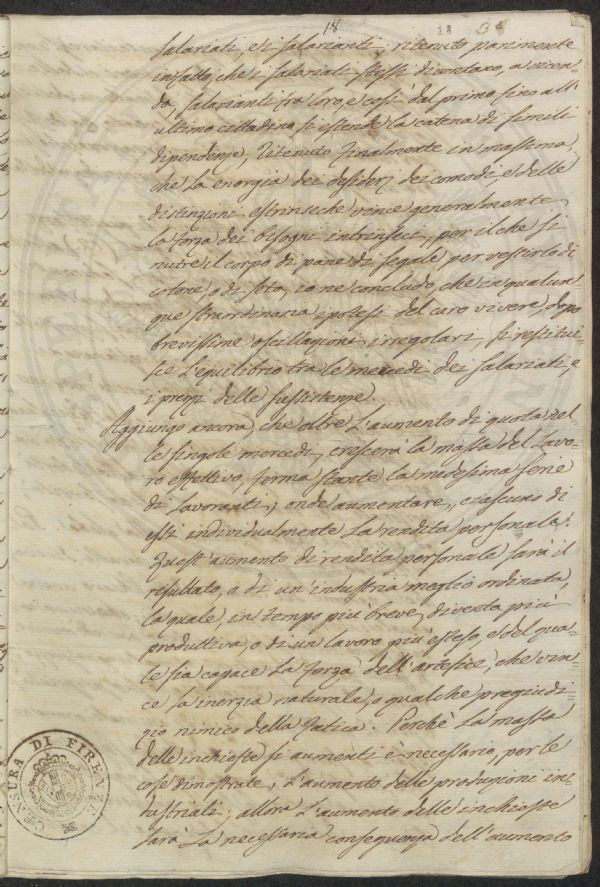 18
salariati, e i salarianti; ritenuto parimente
in fatto, che i salariati stessi diventano, a vicen-
da, salarianti fra loro, e così dal primo sino all'
ultimo cittadino si estende la catena di simili
dipendenze, ritenuto finalmente in massima,
che la energia dei desiderj dei comodi e delle
distinzioni estrinseche vince generalmente
la forza dei bisogni intrinseci, per il che si
nutre il corpo di pane di segale per vestirlo di
cotone, o di seta, io ne concludo, che in qualun-
que straordinaria ipotesi del caro vivere, dopo
brevissime oscillazioni irregolari, si restitui-
sce l'equilibrio tra le mercedi dei salariati, e
i prezzi delle sussistenze.
Aggiungo ancora, che oltre l'aumento di quota nel-
le singole mercedi, crescerà la massa del lavo-
ro effettivo, ferma stante la medesima serie
di lavoranti; onde aumentare, ciascuno di
essi individualmente la rendita personale.
Quest'aumento di rendita personale sarà il
risultato, o di un'industria meglio ordinata,
la quale, in tempo più breve, diventa più
produttiva, o di un lavoro più esteso, e del qua-
le sia capace la forza dell'artefice, che vin-
ce la inerzia naturale, o qualche pregiudi-
zio nimico della fatica. Perchè la massa
delle inchieste si aumenti è necessario, per le
cose dimostrate, l'aumento delle produzioni in-
dustriali; allora l'aumento delle inchieste
sarà la necessaria conseguenza dell'aumento
CENSURA DI FIRENZE